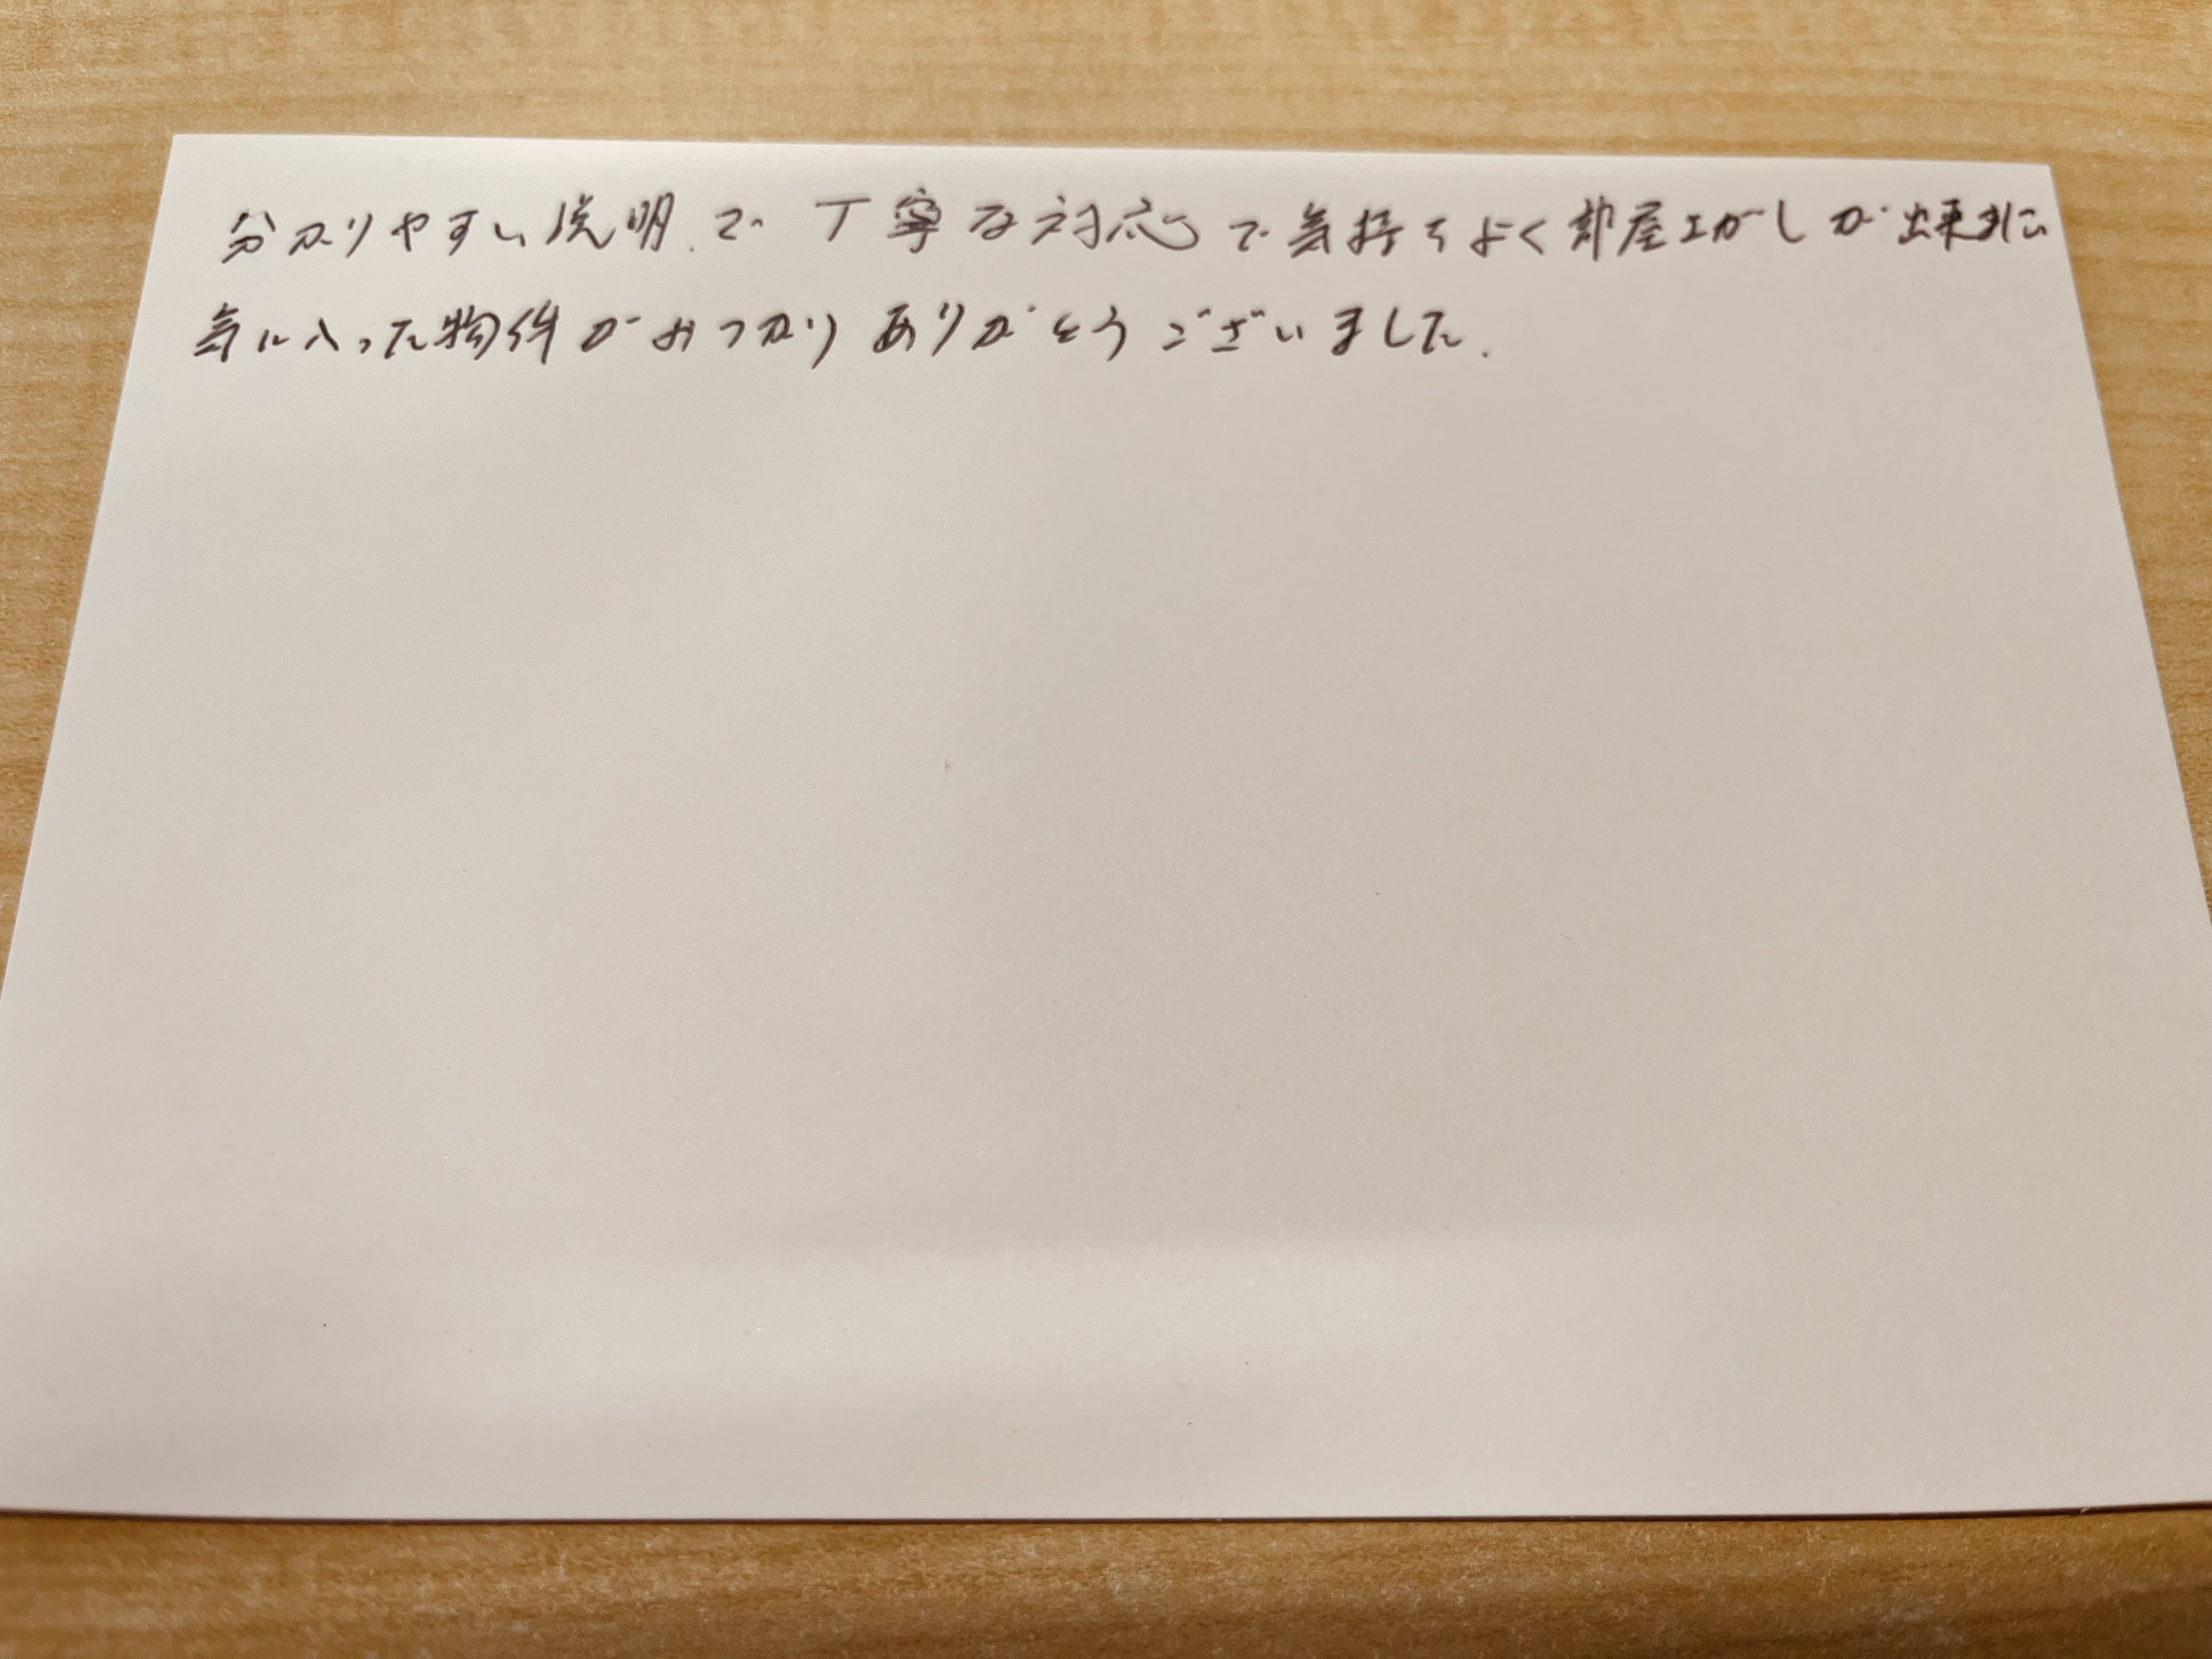 分かりやすい説明で丁寧な対応で気持ちよく部屋さがしが出来ました
気に入った物件がみつかりありがとうございました。